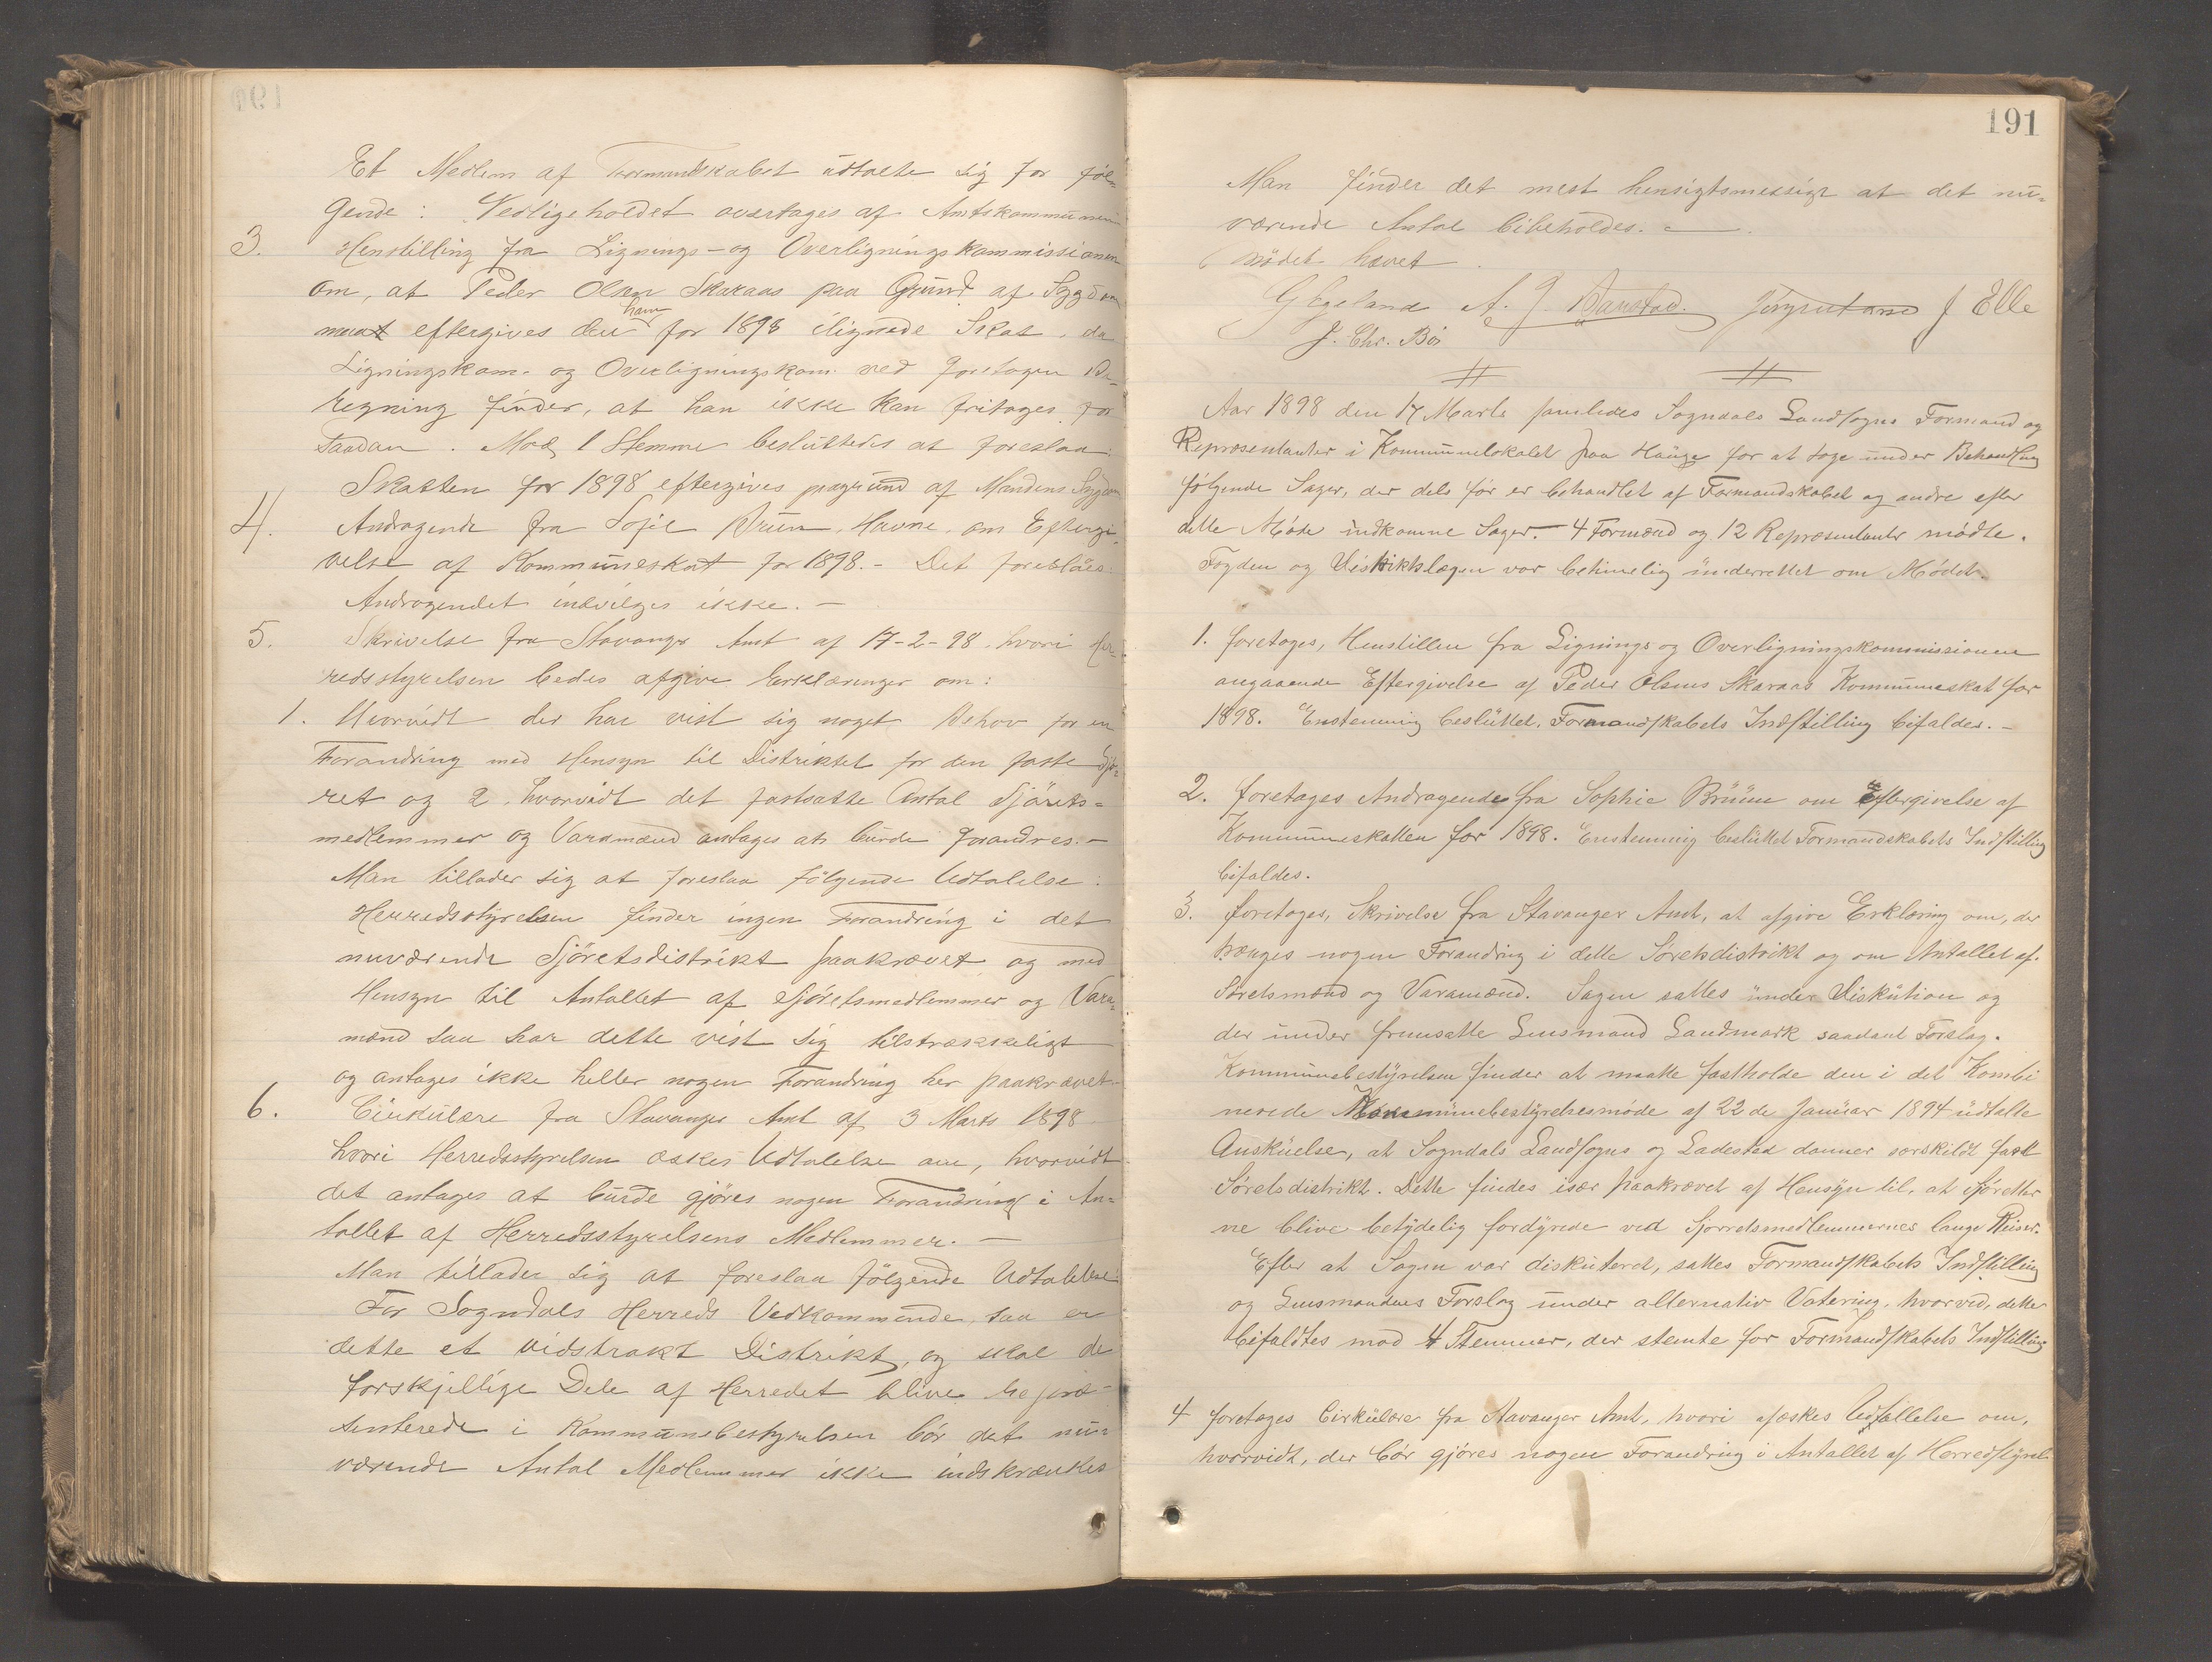 Et Medlem af Formandskabet udtalte sig for føl-
gende: Vedligeholdet overtages af Amtskommunen
3. Henstilling fra Lignings- og Overligningskommissionen
om, at Peder Olsen Skaraas paa Grund af Sygdom
eftergives den ham for 1898 ilignede Skat, da
Ligningskom- og Overligningskom. ved foretagen Be-
regning finder, at han ikke kan fritages for
saadan. Mod 1 Stemme besluttedes at foreslaa:
Skatten for 1898 eftergives paagrund af Mandens Sygdom
4. Andragende fra Sofie Bruun, Havne, om Eftergi-
velse af Kommuneskat for 1898. - Det foreslåes:
Andragendet indvilges ikke. -
5. Skrivelse fra Stavanger Amt af 17-2-98, hvori Her-
redsstyrelsen bedes afgive Erklæringer om:
1. Hvorvidt der har vist sig noget Behov for en
Forandring med Hensyn til Distriktet for den faste Sjø-
ret og 2. hvorvidt det fastsatte Antal Sjørets-
medlemmer og Varamænd antages at burde forandres. -
Man tillader sig at foreslaa følgende Udtalelse:
Herredsstyrelsen finder ingen Forandring i det
nuværende Sjöretsdistrikt paakrævet og med
Hensyn til Antallet af Sjöretsmedlemmer og Vara-
mænd saa har dette vist sig tilstrækkeligt
og antages ikke heller nogen Forandring her paakrævet
6. Cirkulære fra Stavanger Amt af 3 Marts 1898
hvori Herredsstyrelsen æskes Udtalelse om, hvorvidt
det antages at burde gjöres nogen Forandring i An-
tallet af Herredsstyrelsens Medlemmer. -
Man tillader sig at foreslaa følgende Udtalelse:
For Sogndals Herreds Vedkommende, saa er
dette et vidstrakt Distrikt, og skal de
forskjellige Dele af Herredet blive repræ-
senterede i Kommunebestyrelsen bör det nu-
værende Antal Medlemmer ikke indskrænkes
191
Man finder det mest hensigtsmessige at det nu-
værende Antal bibeholdes. -
Mödet hævet.
G Egeland A. J. Barstad. J Elle
J. Chr. Böi
Aar 1898 den 17 Marts samledes Sogndals Landsogns Formænd og
Repræsentanter i Kommunelokalet paa Hauge for at tage under Behandling
følgende Sager, der dels før er behandlet af Formandskabet og andre efter
dette Møde indkomne Sager. - 4 Formænd og 12 Repræsentanter mødte.
Fogden og Distriktslægen var betimelig underrettet om Mødet.
1. foretages, Henstillen fra Lignings og Overligningskommissionen
angaaende Eftergivelse af Peder Olsens Skaraas Kommuneskat for
1898. Enstemmig besluttet, Formandskabets Indstilling bifaldes. -
2. foretages Andragende fra Sophie Brüün om Eftergivelse af
Kommuneskatten for 1898. Enstemmig besluttet Formandskabets Indstilling
bifaldes.
3. foretages, Skrivelse fra Stavanger Amt, at afgive Erklæring om, der
trænges nogen Forandring i dette Søretsdistrikt og om Antallet af
Søretsmænd og Varamænd. Sagen sattes under Diskution og
der under fremsatte Lensmand Landmark saadant Forslag.
Kommunebestyrelsen finder at maatte fastholde den i det Kombi
nerede Kommunebestyrelsesmøde af 22de Januar 1894 udtalte
Anskuelse, at Sogndals Landsogns og Ladested danner særskildt fast
Søretsdistrikt. Dette findes især paakrævet af Hensyn til, at Sjøretter
ne blive betydelig fordyrede ved Sjørretsmedlemmernes lange Reiser.
Efter at Sagen var diskuteret, sattes Formandskabets Indstilling
og Lensmandens Forslag under alternativ Votering, hvorved, dette
bifaldtes mod 4 Stemmer, der stemte for Formandskabets Indstilling
4 foretages Cirkulære fra Stavanger Amt, hvori afæskes Udtallelse om,
hvorvidt, der bör gjöres nogen Forandring i Antallet af Herredstyrel-